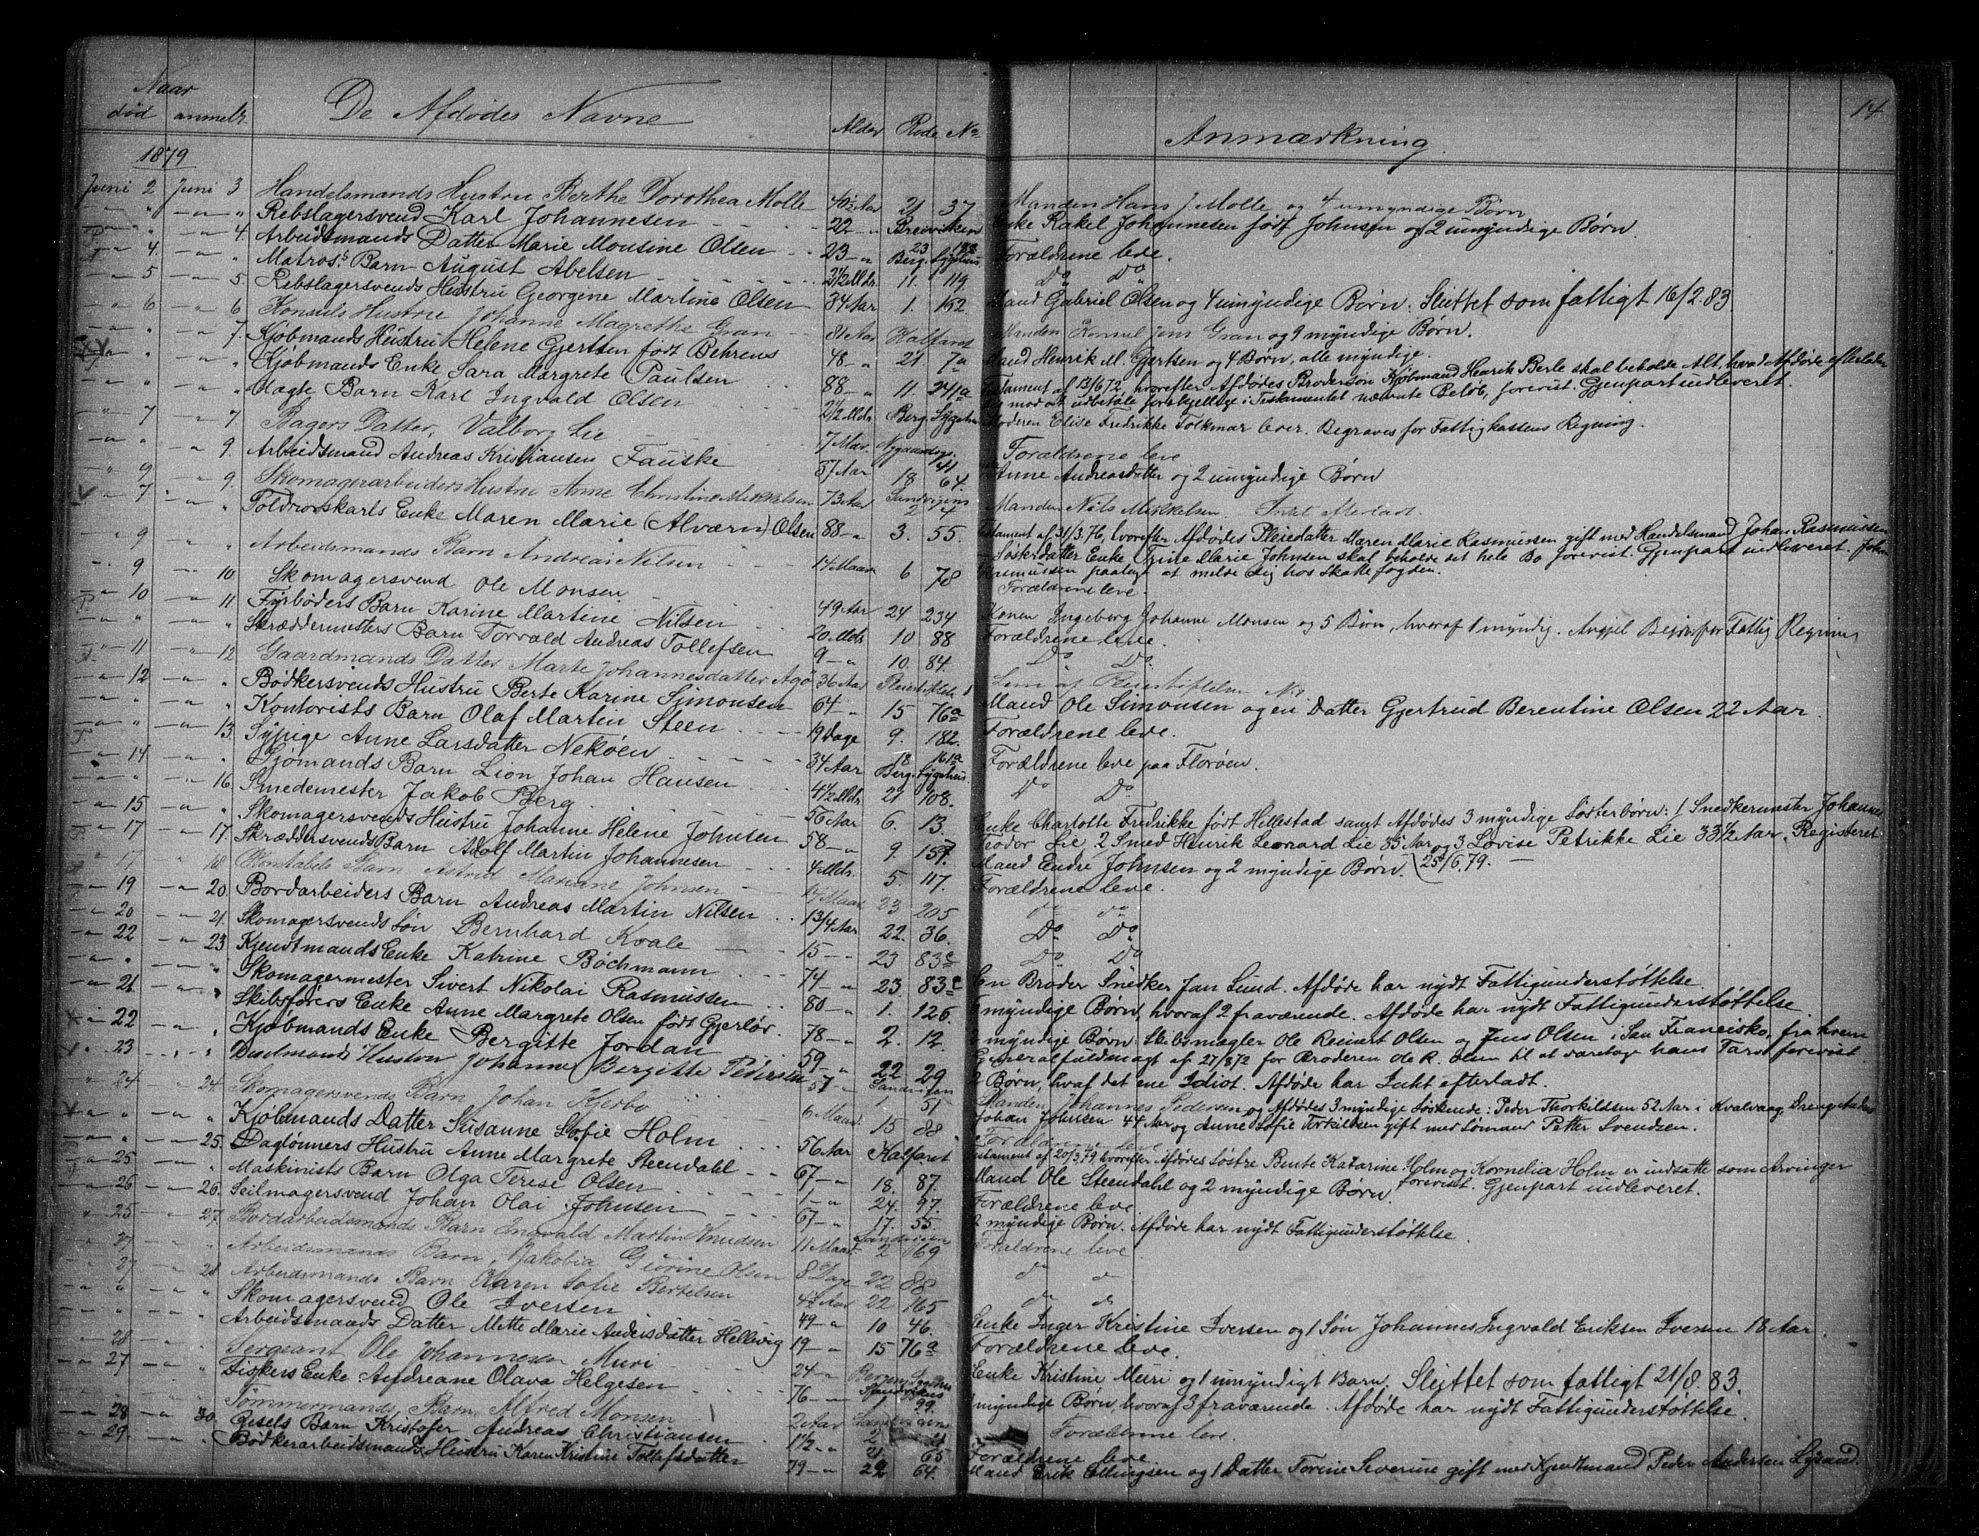 14
Naar
død anmeldt De Afdødes Navne Alder Rode No Anmærkning
1879
Juni 2 Juni 3 Handelsmands Hustru Berthe Dorothea Molle 40½ Aar 21 37 Manden Hans J. Molle og 4 umyndige Børn
" " Rebslagersvend Karl Johannesen 22 Breiviken Enke Rakel Johannesen født Johnsen og 2 umyndige Børn
" 4. Arbeidsmands Datter Marie Monsine Olsen 23 Forældrene leve.
4. " Matros's Barn August Abelsen 2½ Mdr. Berg. Sygehus Do Do
5 5. Rebslagersvends Hustru Georgene Martine Olsen 34 Aar 1. 152. Mand Gabriel Olsen og 4 umyndige Børn. Sluttet som fattigt 16/2.83.
6 6 Konsuls Hustru Johanne Magrethe Gran 81 Aar Kalfaret Manden Konsul Jens Gran og 9 myndige Børn.
" 7. Kjøbmands Hustru Helene Gjertsen født Behrens 48 21 7a Mand Henrik M. Gjertsen og 4 Børn, alle myndige.
" " Kjøbmands Enke Sara Margrete Paulsen 88 11 271a Testament af 13/6 72, hvorefter Afdødes Brodersøn Kjøbmand Henrik Berle skal beholde Alt, hvad Afdøde efterlader
mod at udbetale forskjellige i Testamentet nævnte Beløb, forevist. Gjenpart indleveret.
" " Karl Ingvald Olsen 2½ Mdr. Berg. Sygehus Moderen Elise Fredrikke Folkmar lever. Begraves for Fattigkassens Regning.
7 7 Bagers Datter, Valborg Lie 7 Forældrene leve
" 9. Arbeidsmand Andreas Kristiansen Fauske 57 Aar 18 64. Anne Andreasdatter og 2 umyndige Børn
9 9. Skomagerarbeiders Hustru Anne Christine Mikkelsen 73 Aar Sandvigens 2 4 Manden Nils Mikkelsen. Intet
7 " Toldroerskarls Enke Maren Marie (Alværn) Olsen 88 3. 55. Testament af 31/3.76, hvorefter Afdødes Pleiedatter Maren Marie Rasmussen gift med Handelsmand Johan Rasmussen
og Enke Marie Johnsen skal beholde det hele Bo forevist. Gjenpart indleveret. John
Rasmussen paalagt at melde sig hos Skattefogden.
9 " Arbeidsmands Barn Andreas Nilsen 14 Maan 6 78 Forældrene leve.
9 10. Skomagersvend Ole Monsen 49 Aar 24 234 Konen Ingeborg Johanne Monsen og 5 Børn, hvoraf 1 myndig. for Fattig Regning
10 11 Fyrbøders Barn Karine Martine Nilsen 20 Mdr. 10 88 Forældrene leve.
" " Skræddermesters Barn Torvald Andreas Tollefsen 9 10. 84. Do Do
11 12 Gaardmands Datter Marte Johannesdatter 36 Aar Pleiestiftelse 1 Lem af Pleiestiftelsen No 1
12 " Bødkersvends Hustru Berte Karine Simonsen 64 15 76a Mand Ole Simonsen og en Datter Gjertrud Berentine Olsen 22 Aar.
" " Kontorists Barn Olaf Marten Steen 19 Dage 9. 182. Forældrene leve.
" 13. Sypige Anne Larsdatter Nekøen 34 Aar 18 161a Forældrene leve paa Florøen.
14 " Sjømands Barn Lion Johan Hansen 4½ Mdr. 21 108. Do Do
" 16. Smedemester Jakob Berg 56 Aar 6. 13. Enke Charlotte Fredrikke født Hillestad samt Afdødes 3 myndige Søsterbørn: 1 Snedkermester Johannes
Teodor Lie, 2 Smed Henrik Leonard Lie 35 Aar og 3 Lovise Petrikke Lie 33½ Aar. Registeret
25/6.79.
15 " Skomagersvends Hustru Johanne Helene Johnsen 58 9. 157. Mand Endre Johnsen og 2 myndige Børn.
17 17. Skræddersvends Barn Adolf Martin Johannesen 4 Mdr. 5. 117. Forældrene leve.
17 18. Konstabels Barn Astrid Mariane Johnsen 17 Maan 23 205 do do
19 20. Bordarbeiders Barn Andreas Martin Nilsen 1 3/4 Aar 22. 36. Do Do
20 21. Skomagersvends Søn Bernhard Kvale 15 23 83c Do Do
22 23. Kjendtmands Enke Katrine Bøchmann 74 23. 83c En Broder Snedker Jan Lund. Afdøde har nydt Fattigunderstøttelse.
" " Skomagermester Sivert Nikolai Rasmussen 80 1. 126. 5 myndige Børn, hvoraf 2 fraværende. Afdøde har nydt Fattigunderstøttelse
21 " Skibsførers Enke Anne Margrete Olsen født Gjerløv. 78 2. 12. 2 myndige Børn. Skibsmægler Ole Reinert Olsen og Jens Olsen i San Francisko, fra hvem
Generalfuldmagt af 27/8 72 for Broderen Ole R. Olsen til at varetage hans Tarv forevist
22 " Kjøbmands Enke Bergitte Jordan 59 22 29 2 Børn, hvoraf det ene Idiot. Afdøde har Intet efterladt.
23 " Hustru Johanne Bergitte Pedersen 57 Sandviken 1 51 Manden Johannes Pedersen og Afdødes 3 myndige Søskende: Peder Thorkildsen 52 Aar i Kvalvaag,
Johan Johnsen 44 Aar og Anne Sofie Torkildsen gift med Sømand Petter Svendsen.
24 24. Skomagersvends Barn Johan Kjerbo 6 Maan 15 88 Forældrene leve
" " Kjøbmands Datter Susanne Sofie Holm 56 Aar Kalfaret Testament af 20/3.79 hvorefter Afdødes Søstre Bente Katarine Holm og Kornelia Holm er indsatte som Arvinger
forevist. Gjenpart indleveret.
" 25. Dagtønners Hustru Anne Margrete Steendahl 67 18. 87. Mand Ole Steendahl og 2 myndige Børn.
25 " Maskinists Barn Olga Terese Olsen 1 24. 97. Forældrene leve
26 26. Seilmagersvend Johan Olai Johnsen 67 17. 55. 2 myndige Børn. Afdøde har nydt Fattigunderstøttelse.
25 27. Bordarbeidsmands Barn Ingvald Martin Knudsen 11 Maan Sandviken 2 169 Forældrene leve
27 " Arbeidsmands Barn Jakobia Olsen 8 Dage 22 88 do do
27 28. Arbeidsmands Barn Karen Sofie Bertelsen 22 165 do do
" " Skomagersvend Ole Iversen 49 10 46. Enke Inger Kristine Iversen og 1 Søn Johannes Ingvald Eriksen Iversen 18 Aar.
" " Arbeidsmands Datter Mette Marie Andersdatter Hellevig 19 15 76a Forældrene leve.
28 " Sergeant Ole Johannesen Muri 24 Enke Kristine Muri og 1 umyndigt Barn. Sluttet som fattigt 21/8.83.
27 " Fiskers Enke Andreane Olava Helgesen 76 Sandvikens 99. myndige Børn, hvoraf 3 fraværende. Afdøde har nydt Fattigunderstøttelse.
" " Tømmermands Barn Alfred Monsen 2 Aar Forældrene leve.
28 30. Barn Kristofer Andreas Christiansen 1½ 21 65 Forældrene leve
29. " Bødkerarbeidsmands Hustru Karen Kristine Tollefsdatter 79 22 64. Mand Erik Ellingsen og 1 Datter Torine Severine gift med Kjendtmand Peder Andersen